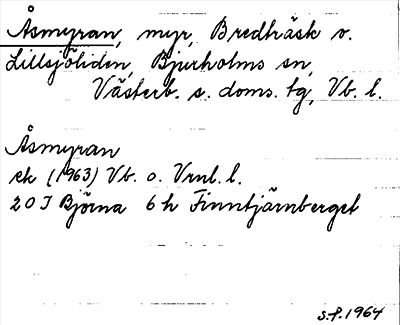 Åsmyran, myr, Bredträsk o.
Lillsjöliden, Bjurholms sn,
Västerb. s. doms. tg, Vb. l.
Åsmyran
ek (1963) Vb. o. Vrnl. l.
20 J Björna 6 h Finntjärnberget
S.P. 1964